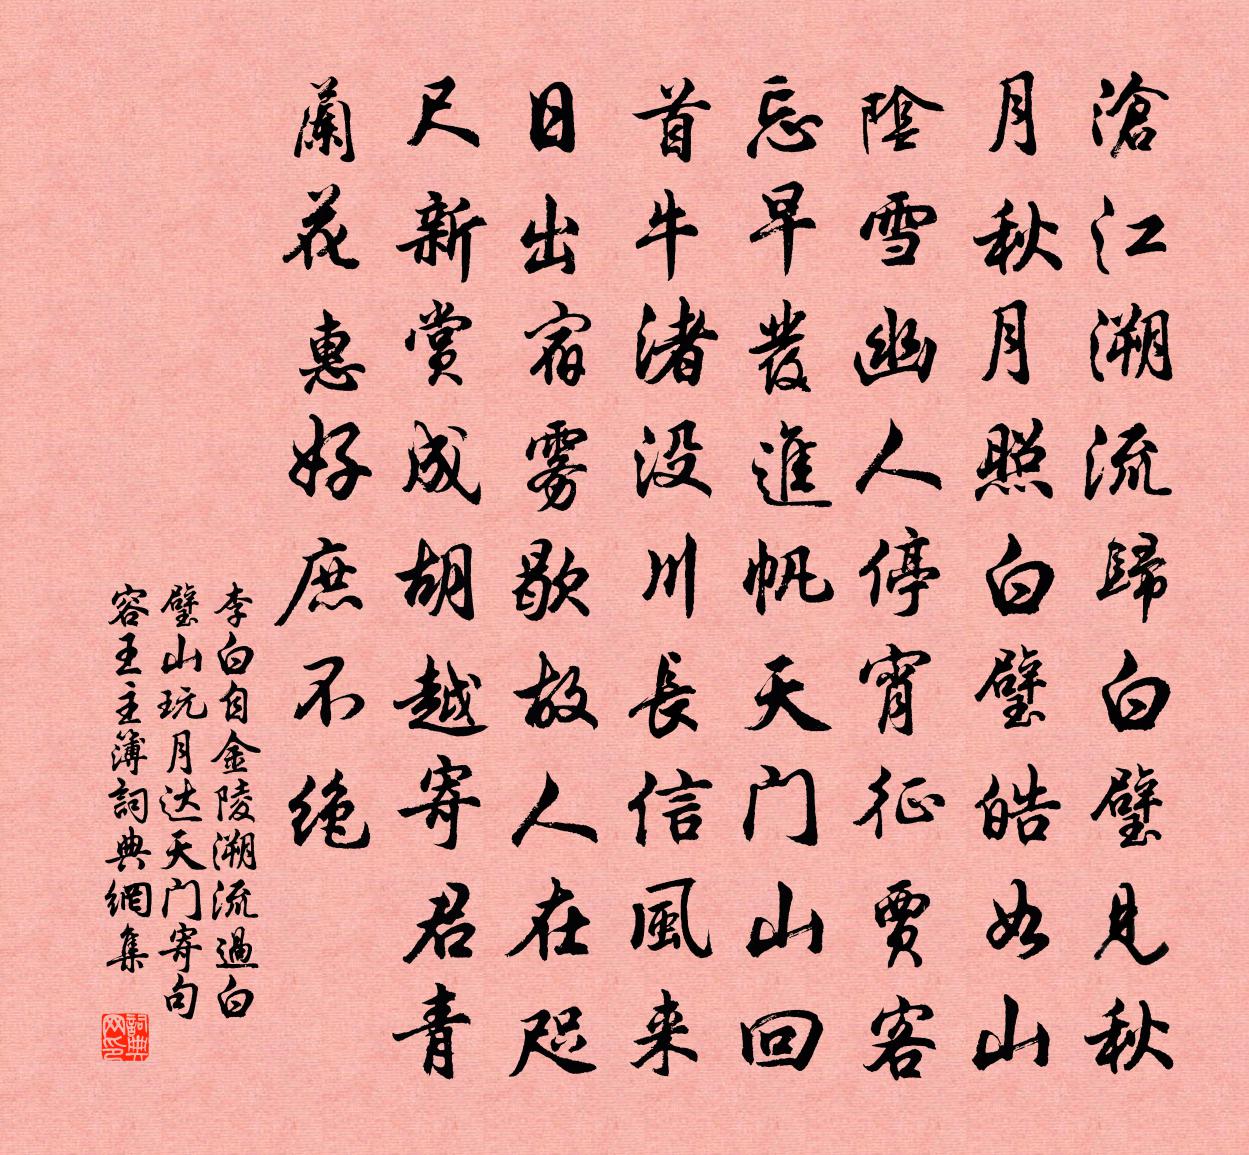 滄江溯流歸白璧見秋
月秋月照白璧皓如山
陰雪幽人停宵征賈客
忘早發進帆天门山回
首牛渚没川長信風来
日出宿雾歇故人在咫
尺新赏成胡越寄君青
蘭花惠好庶不绝
李白自金陵溯流過白
璧山玩月达天门寄句
容王主簿詞典網集
詞典
网印